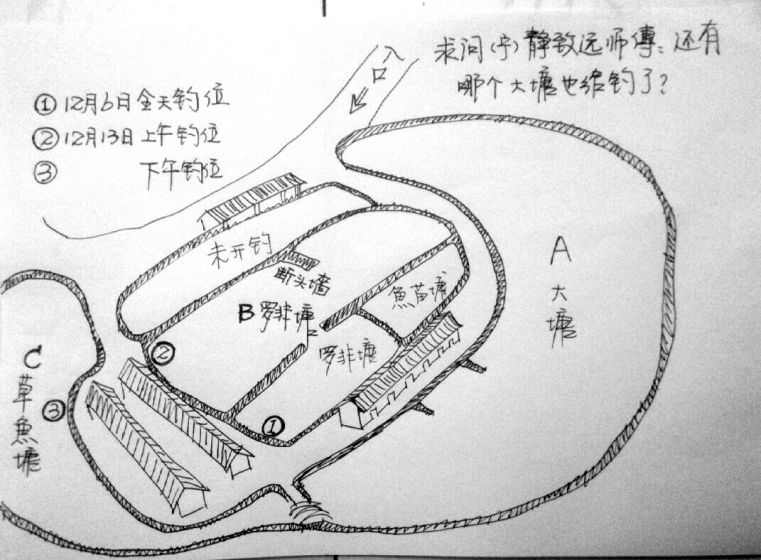 求问(宁)静致远师傅、还有
哪个大塘也给钓了？
入
口
① 12月6日全天钓位
② 12月13日上午钓位
③ 下午钓位
未开钓
断头墙
B罗非塘
魚苗塘
罗非塘
A
大
塘
②
①
C
草
魚
塘
③